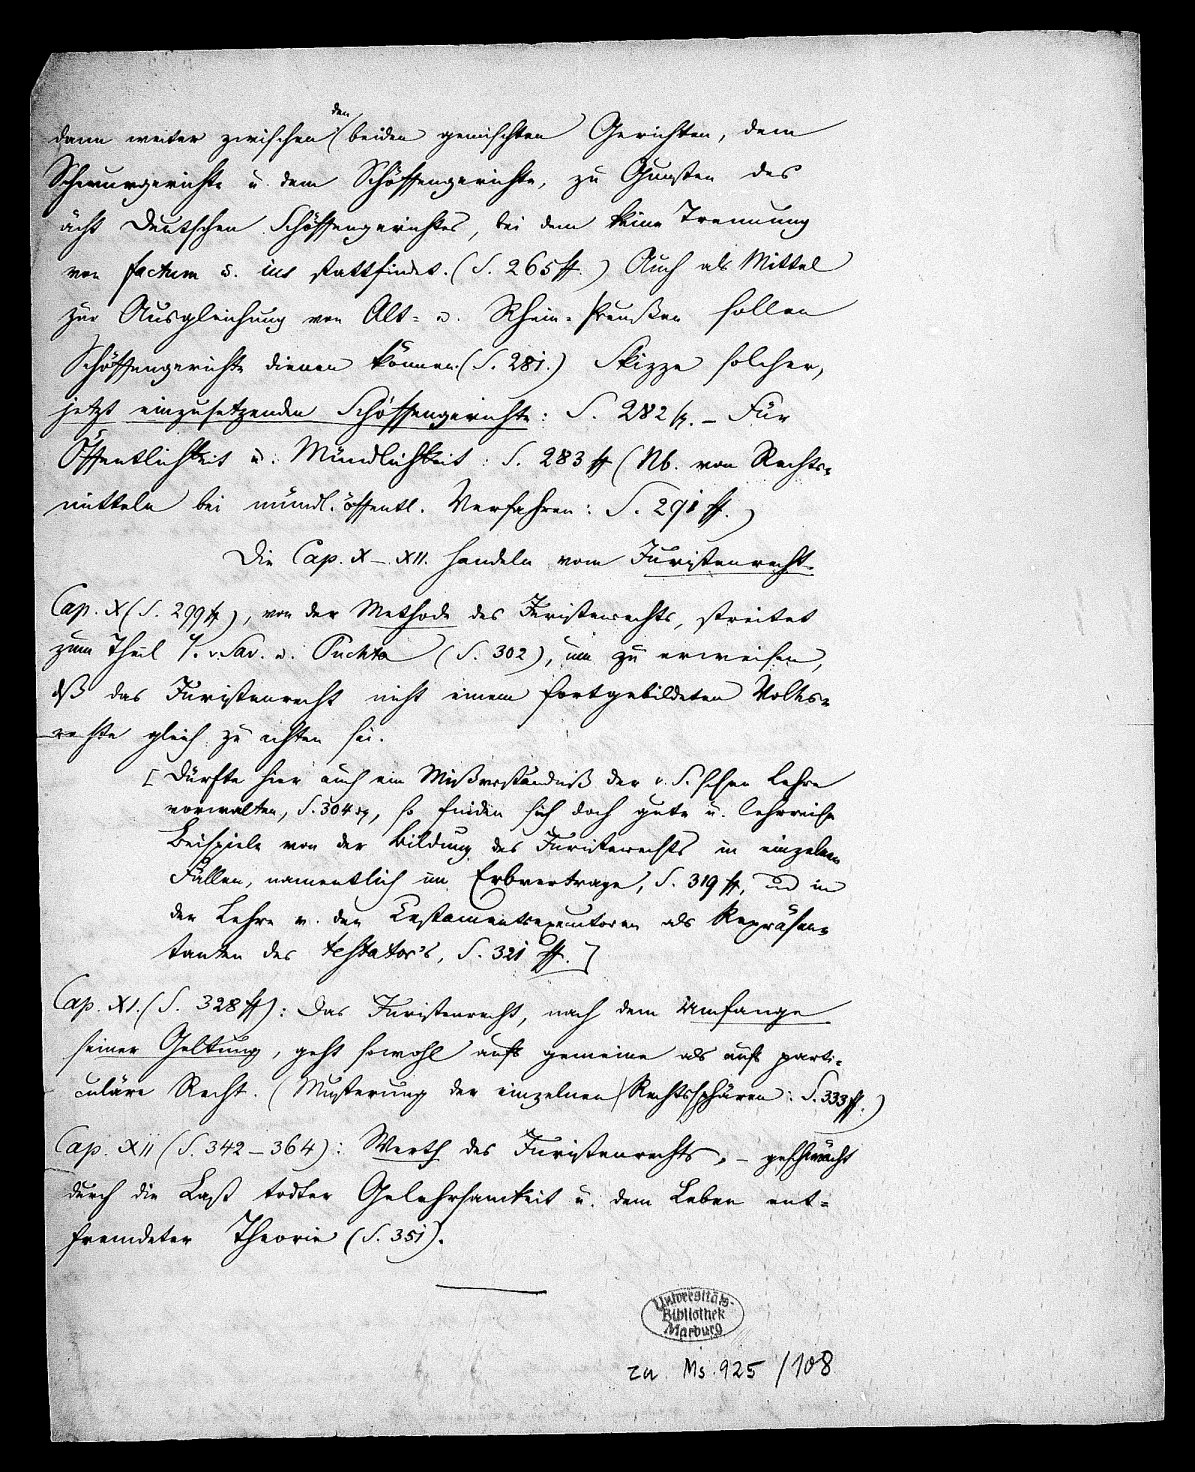 dann weiter zwischen den beiden gemischten Gerichten, dem
Schwurgerichte u. dem Schöffengerichte, zu Gunsten des
ächt deutschen Schöffengerichtes, bei dem keine Trennung
von factum u. ius stattfindet. (S. 265 ff.) Auch als Mittel
zur Ausgleichung von Alt- u. Rhein-Preußen sollen
Schöffengerichte dienen können. (S. 281.) Skizze solcher,
jetzt einzusetzenden Schöffengerichte: S. 282 sq. – Für
Öffentlichkeit u. Mündlichkeit: S. 283 ff (Nb. von Rechts-
mitteln bei mündl. öffentl. Verfahren: S. 291 ff.)
Die Cap. X – XII. handeln vom Juristenrecht.
Cap. X (S. 299 ff), von der Methode des Juristenrechts, streitet
zum Theil v. Sav. u. Puchta (S. 302), um zu erweisen,
dß das Juristenrecht nicht einem fortgebildeten Volks-
rechte gleich zu achten sei.
[Dürfte hier auch ein Mißverständniß der v. S.schen Lehre
vorwalten, S. 304 sq, so finden sich doch gute u. lehrreiche
Beispiele von der Bildung des Juristenrechts in einzelnen
Fällen, namentlich im Erbvertrage, S. 319 ff, und in
der Lehre v. den Testamentsexecutoren als Repräsen-
tanten des testator's, S. 321 ff.]
Cap. XI. (S. 328 ff): Das Juristenrecht, nach dem Umfange
seiner Geltung, geht sowohl aufs gemeine als aufs parti-
culäre Recht. (Musterung der einzelnen Rechtssphären: S. 333 ff.)
Cap. XII (S. 342 – 364): Werth des Juristenrechts, – geschwächt
durch die Last todter Gelehrsamkeit u. dem Leben ent-
fremdeter Theorie (S. 351).
Universitäts-
Bibliothek
Marburg
zu Ms. 925 / 108